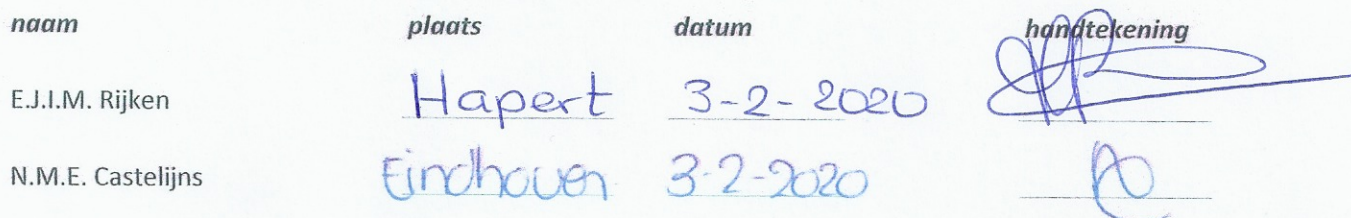 naam plaats datum handtekening
E.J.I.M. Rijken Hapert 3-2-2020
N.M.E. Castelijns Eindhoven 3-2-2020